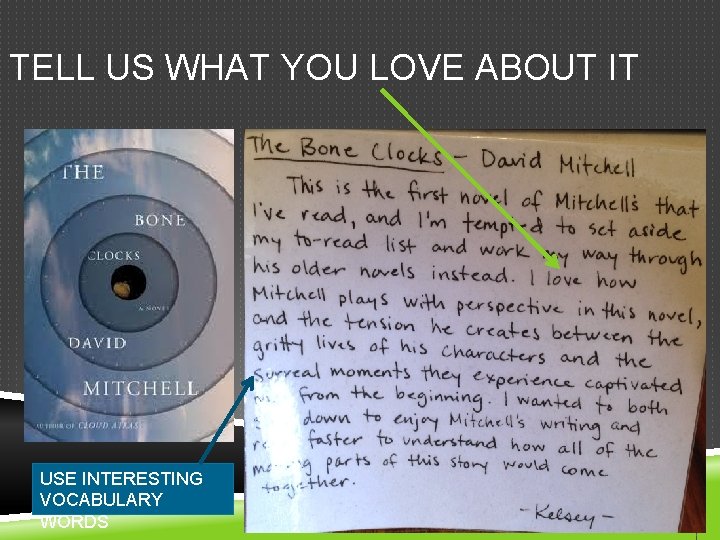 TELL US WHAT YOU LOVE ABOUT IT
THE
BONE
CLOCKS
A NOVEL
DAVID
MITCHELL
AUTHOR OF CLOUD ATLAS
The Bone Clocks - David Mitchell
This is the first novel of Mitchell's that
I've read, and I'm tempted to set aside
my to-read list and work my way through
his older novels instead. I love how
Mitchell plays with perspective in this novel,
and the tension he creates between the
gritty lives of his characters and the
surreal moments they experience captivated
from the beginning. I wanted to both
down to enjoy Mitchell's writing and
faster to understand how all of the
parts of this story would come
together.
- Kelsey -
USE INTERESTING
VOCABULARY
WORDS